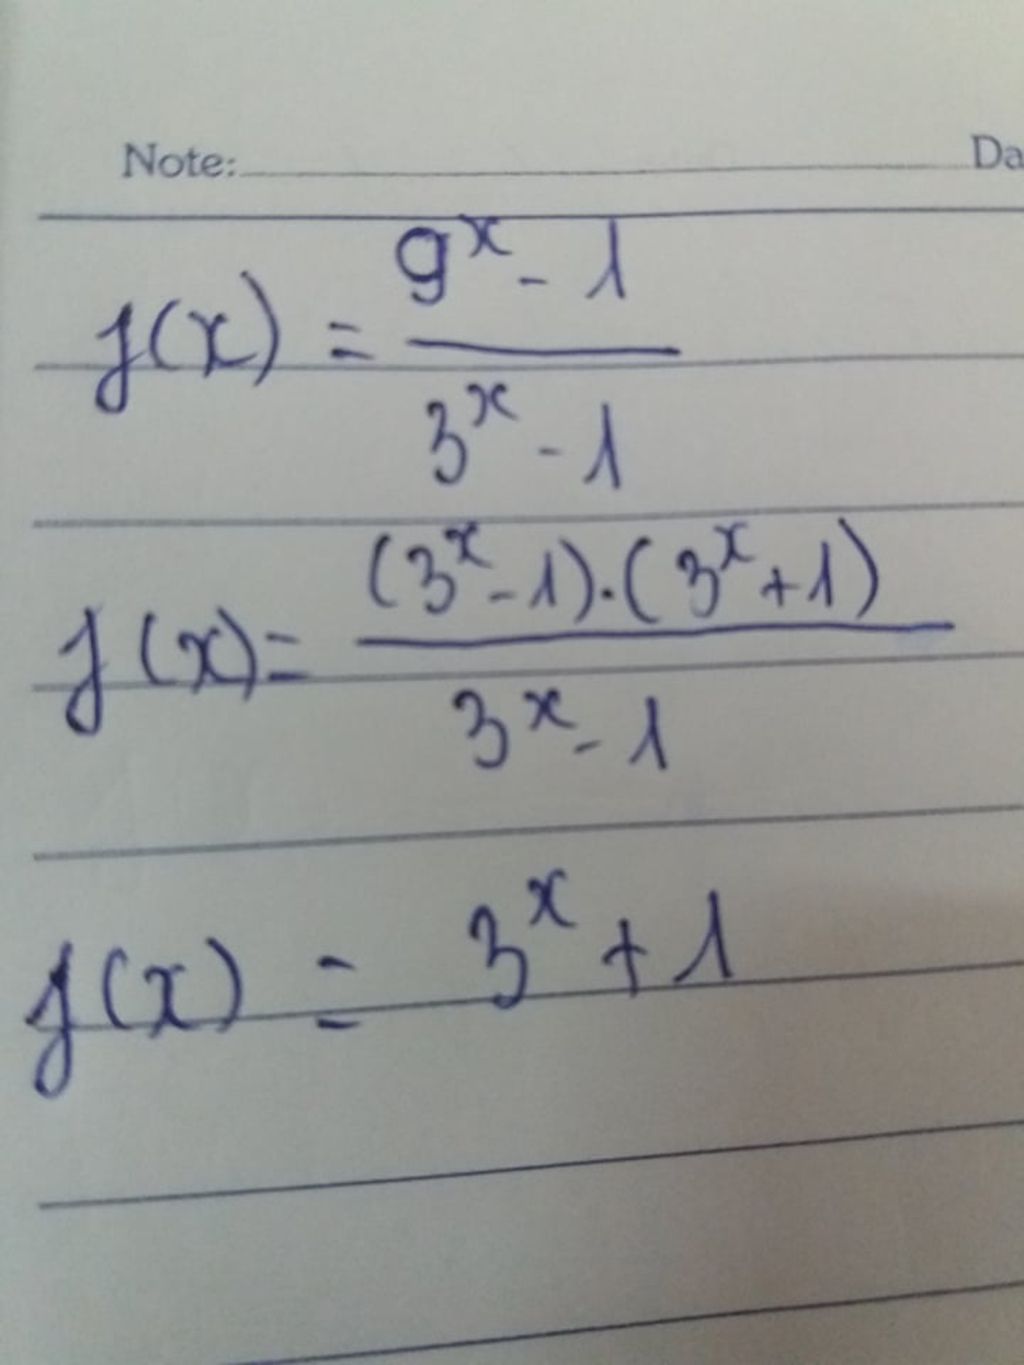 Note: Da
f(x) = \frac{9^x - 1}{3^x - 1}
f(x) = \frac{(3^x - 1) \cdot (3^x + 1)}{3^x - 1}
f(x) = 3^x + 1